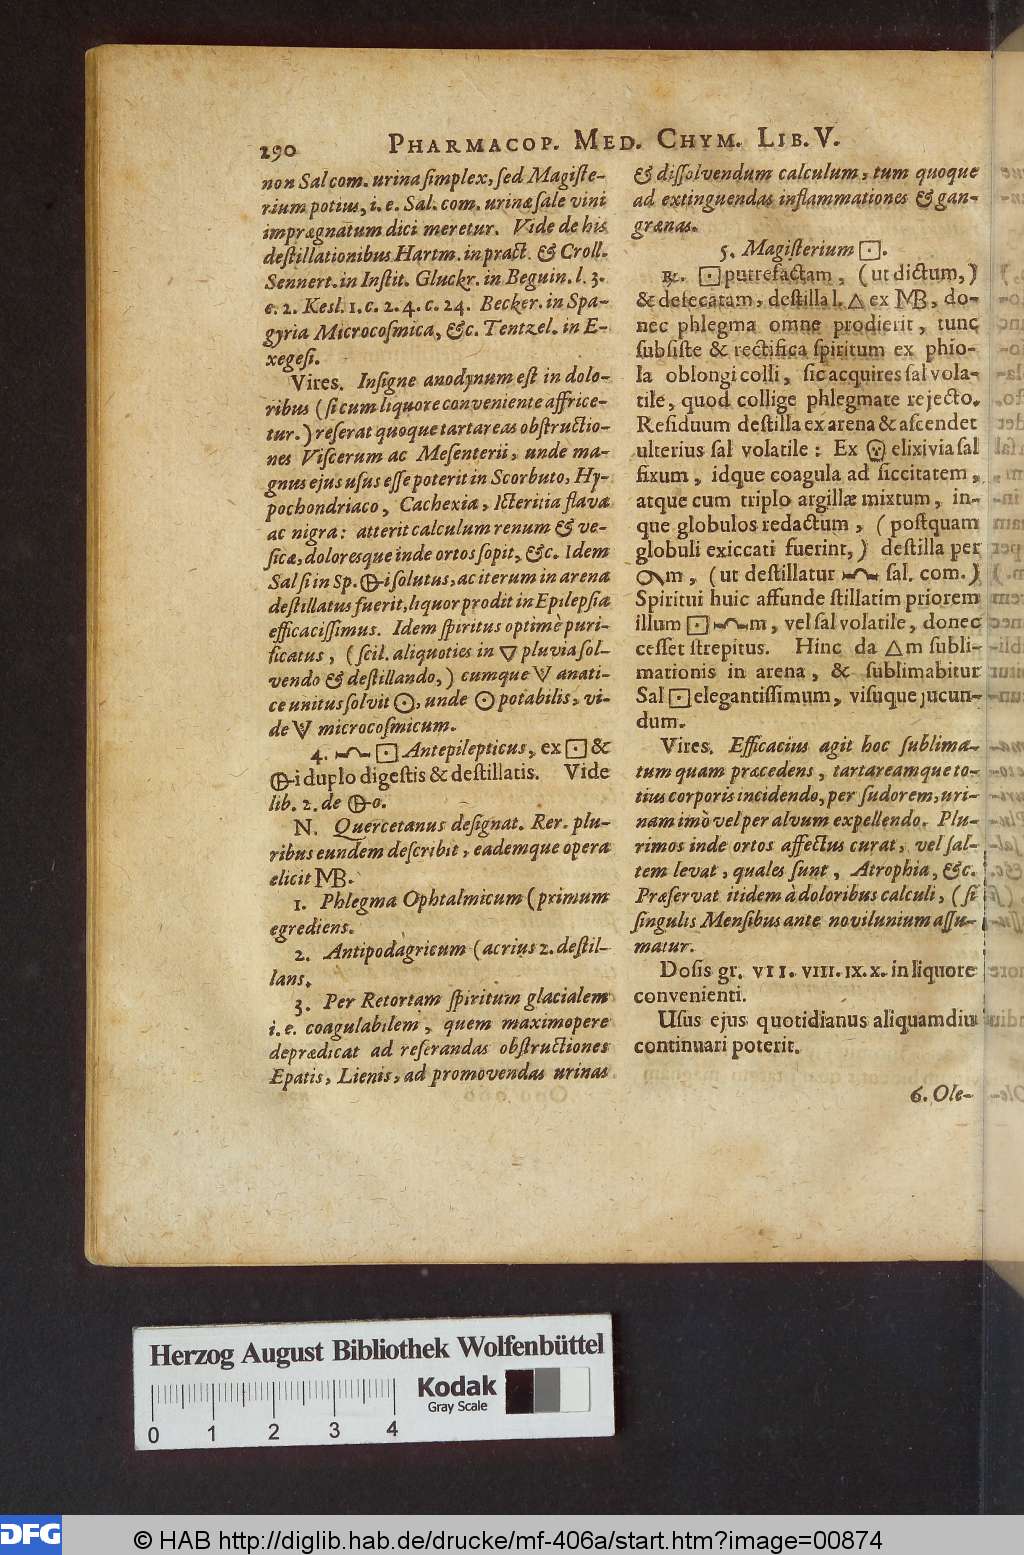 290 PHARMACOP. MED. CHYM. LIB. V.
non Sal com. urina ſimplex, ſed Magiſte-
rium potius, i. e. Sal. com. urinæ ſale vini
imprægnatum dici meretur. Vide de his
deſtillationibus Hartm. in pract. & Croll.
Sennert. in Inſtit. Gluckr. in Beguin. l. 3.
c. 2. Keſl. 1. c. 2. 4. c. 24. Becker. in Spa-
gyria Microcoſmica, &c. Tentzel. in E-
xegeſi.
Vires. Inſigne anodynum eſt in dolo-
ribus (ſi cum liquore conveniente affrice-
tur.) reſerat quoque tartareas obſtructio-
nes Viſcerum ac Meſenterii, unde ma-
gnus ejus uſus eſſe poterit in Scorbuto, Hy-
pochondriaco, Cachexia, Icteritia flava
ac nigra: atterit calculum renum & ve-
ſicæ, doloresque inde ortos ſopit, &c. Idem
Sal ſi in Sp. 🜕i ſolutus, ac iterum in arena
deſtillatus fuerit, liquor prodit in Epilepſia
efficaciſſimus. Idem ſpiritus optimè puri-
ficatus, (ſcil. aliquoties in 🜄 pluvia ſol-
vendo & deſtillando,) cumque 🜆 anati-
ce unitus ſolvit ☉, unde ☉ potabilis, vi-
de 🜆 microcoſmicum.
4. ⊡ Antepilepticus, ex ⊡ &
🜕i duplo digeſtis & deſtillatis. Vide
lib. 2. de 🜕o.
N. Quercetanus deſignat. Rer. plu-
ribus eundem deſcribit, eademque opera
elicit MB.
1. Phlegma Ophtalmicum (primum
egrediens.
2. Antipodagricum (acrius 2. deſtil-
lans.
3. Per Retortam ſpiritum glacialem
i. e. coagulabilem, quem maximopere
deprædicat ad reſerandas obſtructiones
Epatis, Lienis, ad promovendas urinas
& diſſolvendum calculum, tum quoque
ad extinguendas inflammationes & gan-
grænas.
5. Magiſterium ⊡.
℞. ⊡ putrefactam, (ut dictum,)
& defecatam, deſtilla l. △ ex MB, do-
nec phlegma omne prodierit, tunc
ſubſiſte & rectifica ſpiritum ex phio-
la oblongi colli, ſic acquires ſal vola-
tile, quod collige phlegmate rejecto.
Reſiduum deſtilla ex arena & aſcendet
ulterius ſal volatile: Ex 💀 elixivia ſal
fixum, idque coagula ad ſiccitatem,
atque cum triplo argillæ mixtum, in-
que globulos redactum, (poſtquam
globuli exiccati fuerint,) deſtilla per
m, (ut deſtillatur ſal. com.)
Spiritui huic affunde ſtillatim priorem
illum ⊡ m, vel ſal volatile, donec
ceſſet ſtrepitus. Hinc da △m ſubli-
mationis in arena, & ſublimabitur
Sal ⊡ elegantiſſimum, viſuque jucun-
dum.
Vires. Efficacius agit hoc ſublima-
tum quam præcedens, tartareamque to-
tius corporis incidendo, per ſudorem, uri-
nam imò vel per alvum expellendo. Plu-
rimos inde ortos affectus curat, vel ſal-
tem levat, quales ſunt, Atrophia, &c.
Præſervat itidem à doloribus calculi, (ſi
ſingulis Menſibus ante novilunium aſſu-
matur.
Doſis gr. VII. VIII. IX. X. in liquore
convenienti.
Uſus ejus quotidianus aliquamdiu
continuari poterit.
6. Ole-
Herzog August Bibliothek Wolfenbüttel
Kodak
Gray Scale
0 1 2 3 4
DFG
© HAB http://diglib.hab.de/drucke/mf-406a/start.htm?image=00874